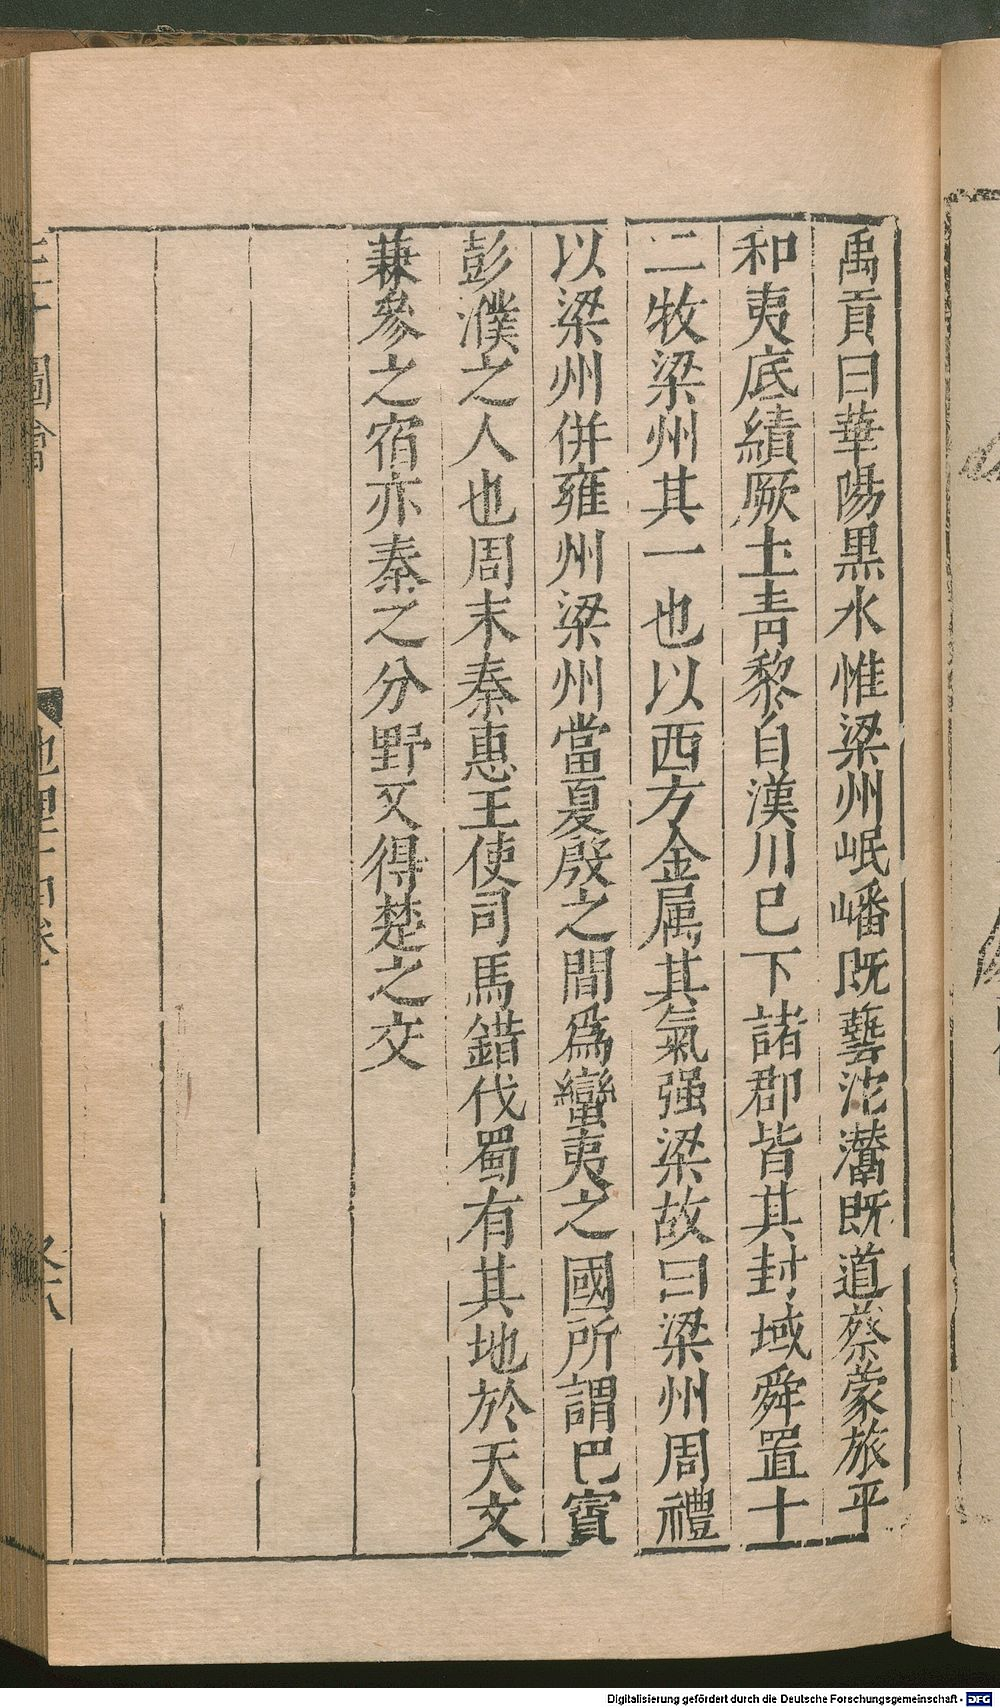 禹貢曰華陽黑水惟梁州岷嶓既藝沱灊既道蔡蒙旅平
和夷底績厥土青黎自漢川已下諸郡皆其封域舜置十
二牧梁州其一也以西方金属其氣强梁故曰梁州周禮
以梁州併雍州梁州當夏殷之間爲蠻夷之國所謂巴賨
彭濮之人也周末秦惠王使司馬錯伐蜀有其地於天文
兼參之宿亦秦之分野又得楚之交
圖會
地理十四卷
Digitalisierung gefördert durch die Deutsche Forschungsgemeinschaft - DFG